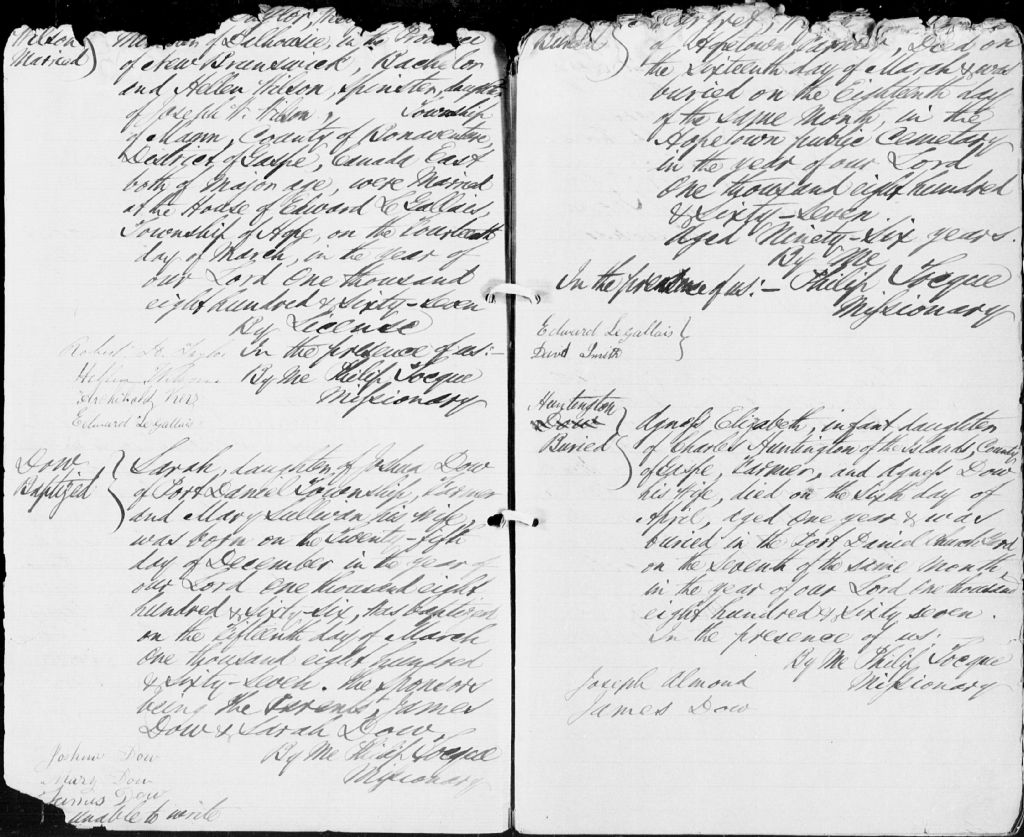 Wilson
Married
of Dalhousie, in the Province
of New Brunswick, Bachelor
and Hellen Wilson, Spinster, daughter
of Joseph W. Wilson, Township
of Mann, County of Bonaventure,
District of Gaspé, Canada East
both of Major age, were Married
at the House of Edward Le Gallais,
Township of Hope, on the Fourteenth
day of March, in the year of
our Lord One thousand
eight hundred & Sixty-Seven
By License
In the presence of us:-
By Me Philip Tocque
Missionary
Robert
Archibald Kerr
Edward Le Gallais
Dow
Baptized
Sarah, daughter of Joshua Dow
of Port Daniel Township, Farmer
and Mary Sullivan his Wife,
was born on the Twenty-fifth
day of December in the year of
our Lord One thousand eight
hundred & Sixty-Six, was baptized
on the Fifteenth day of March
One thousand eight hundred
& Sixty-Seven. the Sponsors
being the Parents, James
Dow & Sarah Dow.
By Me Philip Tocque
Missionary
Joshua Dow
Mary Dow
James Dow
unable to write
Buried
of Hopetown Farmer, Died on
the Sixteenth day of March & was
buried on the Eighteenth day
of the same Month, in the
Hopetown public Cemetery
in the year of our Lord
One thousand eight hundred
& Sixty-Seven.
Aged Ninety-Six years.
By Me
In the presence of us:- Philip Tocque
Missionary
Edward Le Gallais
David Smith
Huntington
Dow
Buried
Agness Elizabeth, infant daughter
of Charles Huntington of the Islands, County
of Gaspe, Farmer, and Agness Dow
his Wife, died on the Sixth day of
April, aged One year & was
buried in the Port Daniel Church Yard
on the Seventh of the same Month
in the year of our Lord One thousand
eight hundred & Sixty seven.
In the presence of us:
By Me Philip Tocque
Missionary
Joseph Almond
James Dow